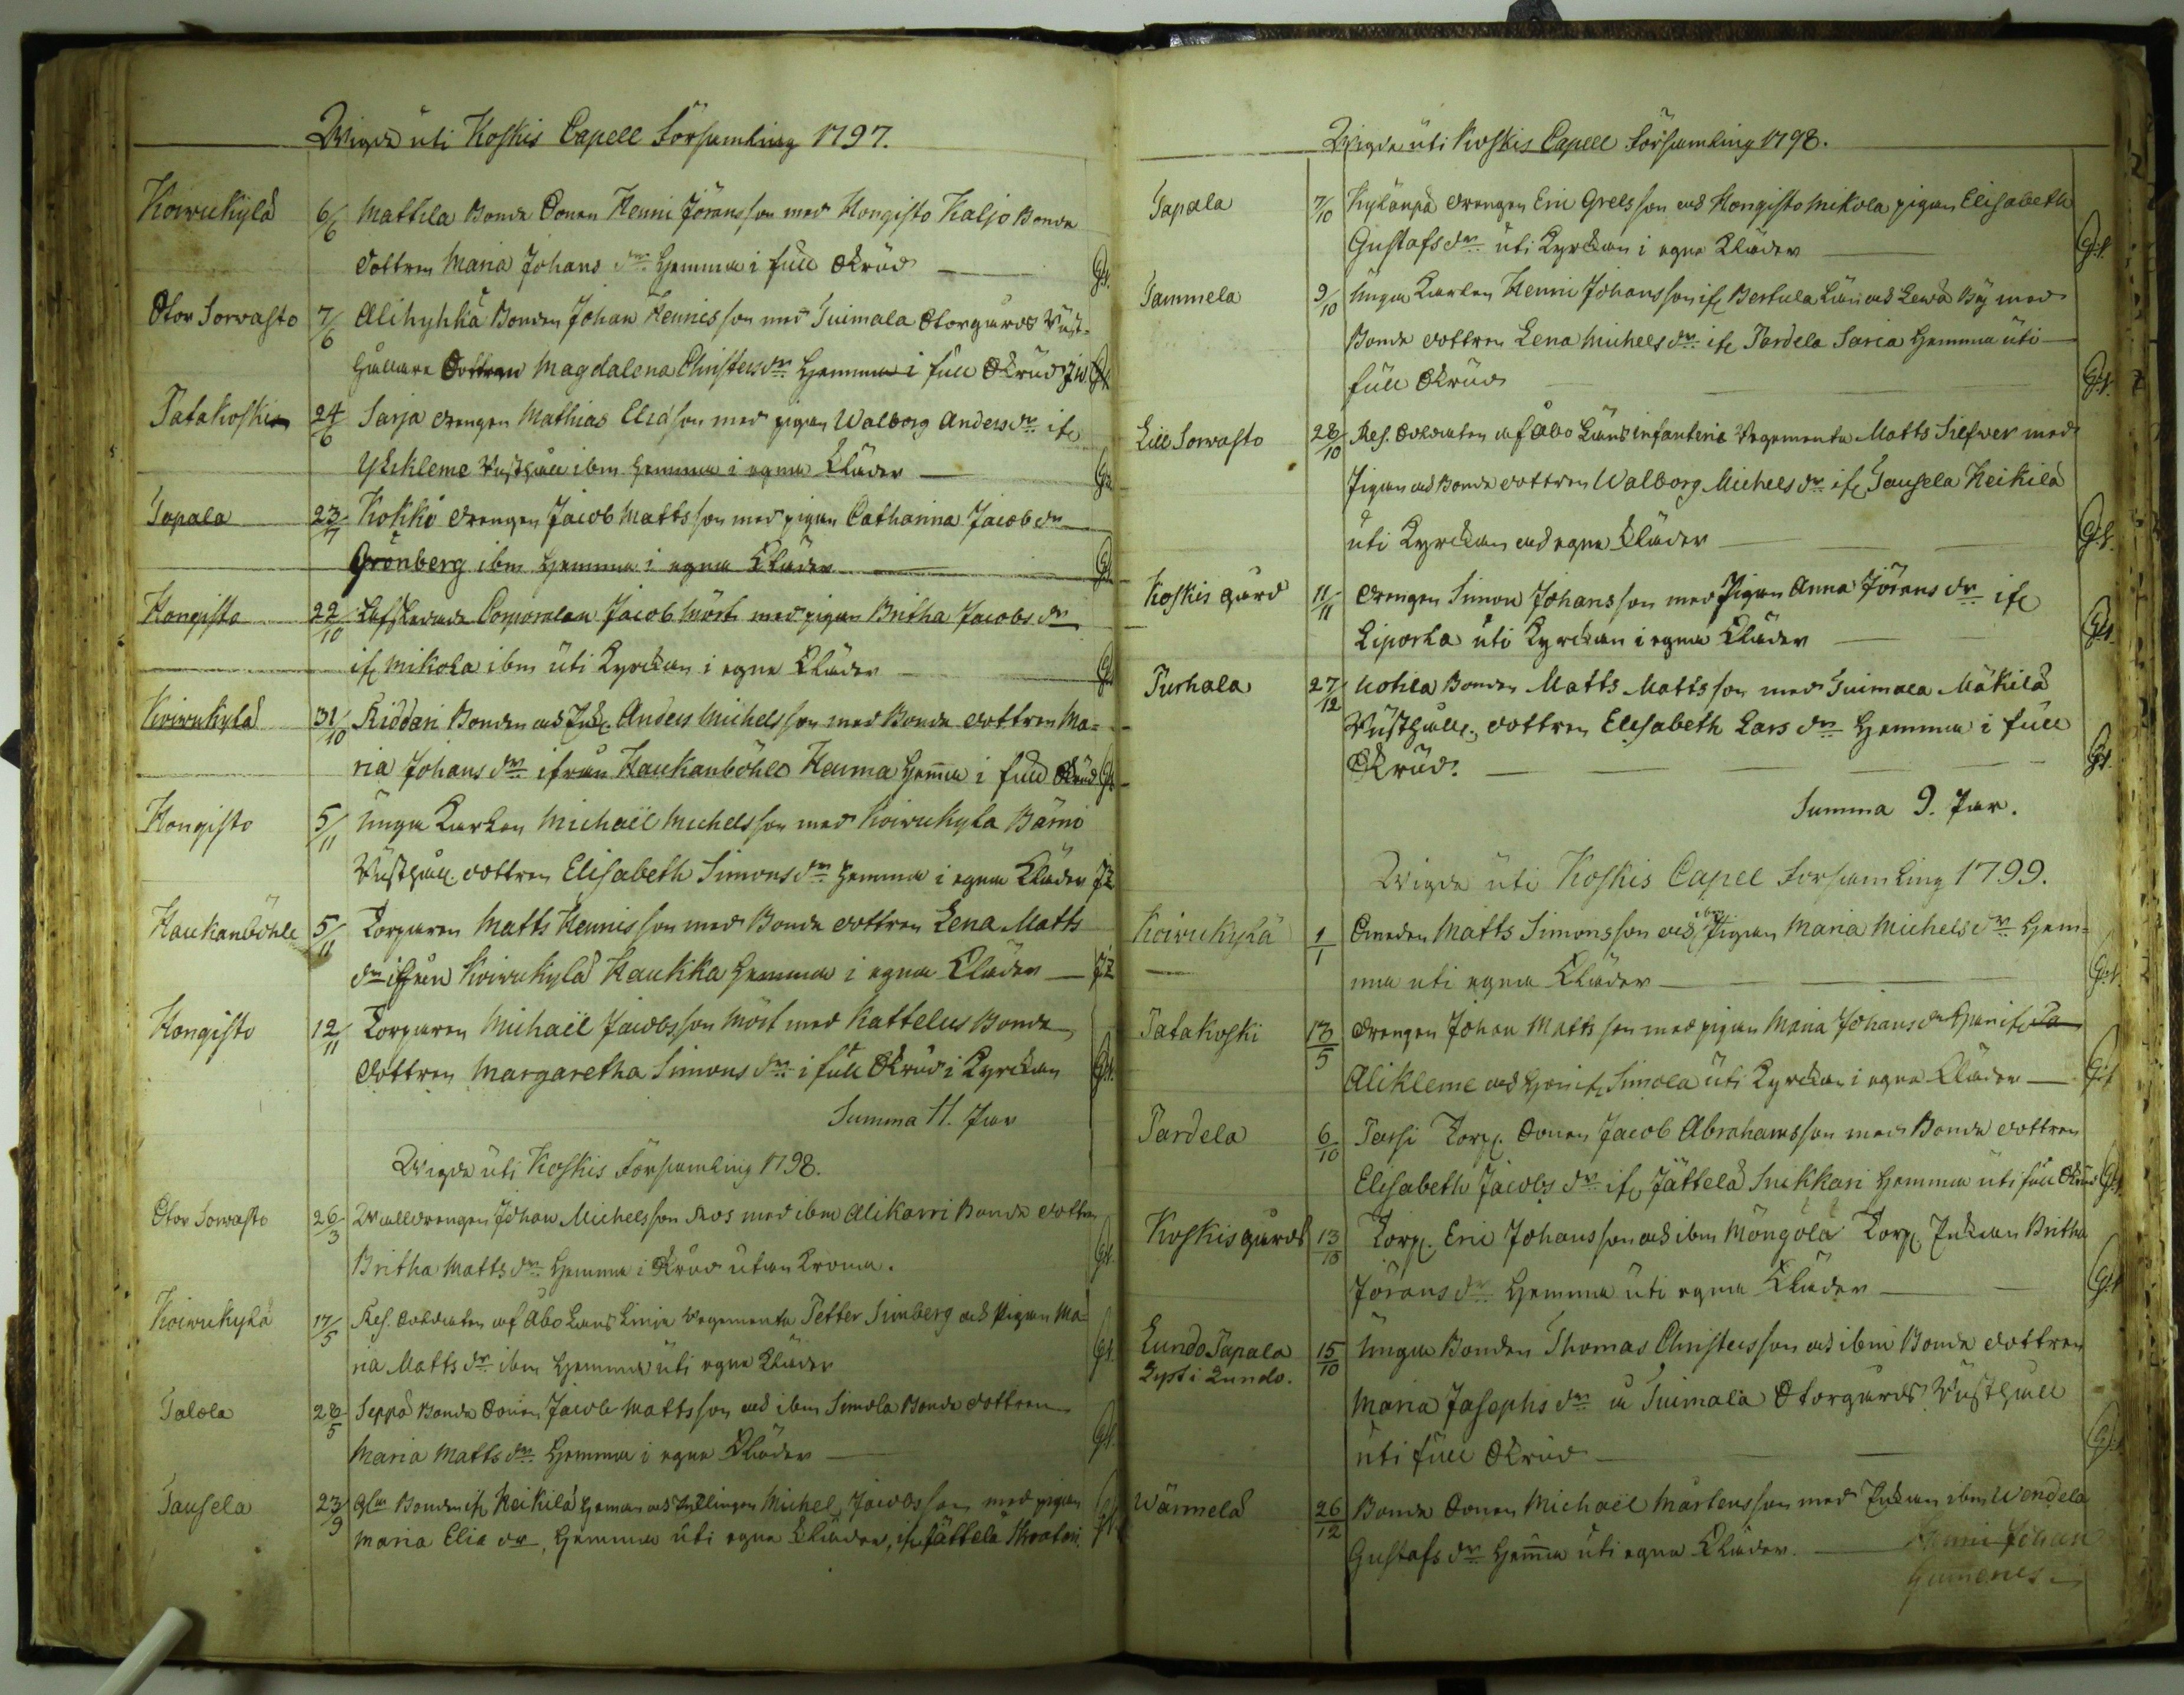 Wigde uti Koskis Capell Församling 1797.
Koiwukylä 6/6 Mattila Bonde Sonen Henric Jöransson med Hongisto Kaljo Bonde
dottren Maria Johans dr hemma i full Skrud Gst.
Stor Sorvasto 7/6 Alihyhkä Bonden Johan Henricsson med Tuimala Storgårds Rust-
hållare Dottren Magdalena Christers dr hemma i full Skrud
Patakoski 24/6 Sarja drengen Mathias Eliæson med pigan Walborg Anders dr if
Ylikleme Rusthåll ibm hemma i egna Kläder Gst
Tapala 23/7 Kokko drengen Jacob Mattsson med pigan Catharina Jacobs dr
Grönberg ibm hemma i egna Kläder Gst
Hongisto 22/10 Afskedade Corporalen Jacob Mört med pigan Britha Jacobs dr
if Mikola ibm uti Kyrckan i egna Kläder Gst
Koiwukylä 31/10 Riddari Bonden och Enk. Anders Michelsson med Bonde dottren Ma-
ria Johans dr ifrån Haukanböhle Heuma hemma i full Skrud Gst
Hongisto 5/11 Unga Karlen Michaël Michelsson med Koiwukyla Bärni
Rusthåll. dottren Elisabeth Simons dr hemma i egna Kläder
Haukanböhle 5/11 Torparen Matts Henricsson med Bonde dottren Lena Matts
dr ifrån Koiwukylä Haukka hemma i egna Kläder
Hongisto 12/11 Torparen Michaël Jacobsson Mört med Kattelus Bonde
dottren Margaretha Simons dr i full Skrud i Kyrckan Gst.
Summa 11. Par
Wigde uti Koskis Församling 1798.
Stor Sorvasto 26/3 Walldrengen Johan Michelsson Ros med ibm Alikarri Bonde dottren
Britha Matts dr hemma i Skrud utan Krona. Gst
Koiwukylä 17/5 Res. Soldaten af Åbo Läns Linje Regemente Petter Simberg och Pigan Ma-
ria Matts dr ibm hemma uti egna Kläder Gst.
Talola 28/5 Seppä Bonde Sonen Jacob Mattsson och ibm Simola Bonde dottren
Maria Matts dr hemma i egna Kläder Gst.
Tausela 23/9 Bonden if Heikilä Michel Jacobsson med pigan
Maria Eliæ dr, hemma uti egna Kläder, if Jättelä Gst
Wigde uti Koskis Capell Församling 1798.
Tapala 7/10 Kylänpä drengen Eric Grelsson och Hongisto Mikola pigan Elisabeth
Gustafs dr uti Kyrckan i egna Kläder Gst.
Tammela 9/10 Unga Karlen Henric Johansson if Bertula Län och Lewä By med
Bonde dottren Lena Michels dr if Pardela Saria hemma uti
full Skrud Gst.
Lill Sorvasto 28/10 Res. Soldaten af Åbo Läns infanterie Regemente Matts Silfwer med
Pigan och Bonde dottren Walborg Michels dr if Tausela Heikilä
uti Kyrckan och egna Kläder Gst.
Koskis gård 11/11 drengen Simon Johansson med Pigan Anna Jörans dr if
Liporla uti Kyrckan i egna Kläder Gst.
Purhala 27/12 Uotila Bonden Matts Mattsson med Tuimala Mäkilä
Rusthåll. dottren Elisabeth Lars dr hemma i full
Skrud. Gst.
Summa 9. Par.
Wigde uti Koskis Capel Forsamling 1799.
Koiwukylä 1/1 Smeden Matts Simonsson och ibm Pigan Maria Michels dr hem-
ma uti egna Kläder Gst.
Patakoski 13/5 drengen Johan Mattsson med pigan Maria Johans dr han if
Alikleme och hon if Simola uti Kyrckan i egna Kläder Gst
Pardela 6/10 Passi Torp. Sonen Jacob Abrahamsson med Bonde dottren
Elisabeth Jacobs dr if Jättelä Snikkari hemma uti full Skrud Gst
Koskis gård 13/10 Torp. Eric Johansson och ibm Möngölä Torp. Enkan Britha
Jörans dr hemma uti egna Kläder Gst
Lundo Tapala 15/10 Unga Bonden Thomas Christersson och ibm Bonde dottren
Lyst i Lundo.
Maria Josephs dr å Tuimala Storgårds Rusthåll
uti full Skrud Gst
Wärmelä 26/12 Bonde Sonen Michaël Mårtensson med Enkan ibm Wendela
Gustafs dr hemma uti egna Kläder.
Henric Johan